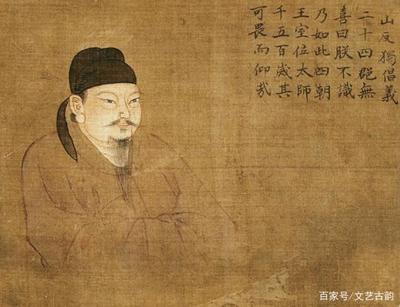 山反獨倡義
二十四郡無
喜曰朕不識
乃如此四朝
王室位太師
千五百歲其
可畏而仰哉
百家号/文艺古韵